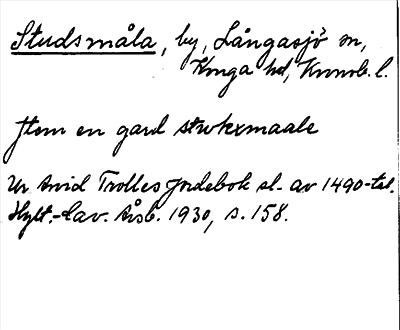 Studsmåla, by, Långasjö sn,
Konga hd, Kronob. l.
Jtem en gard stwkxmaale
Ur Arvid Trolles Jordebok sl. av 1490-tal.
Hylt.-Cav. Årsb. 1930, s. 158.